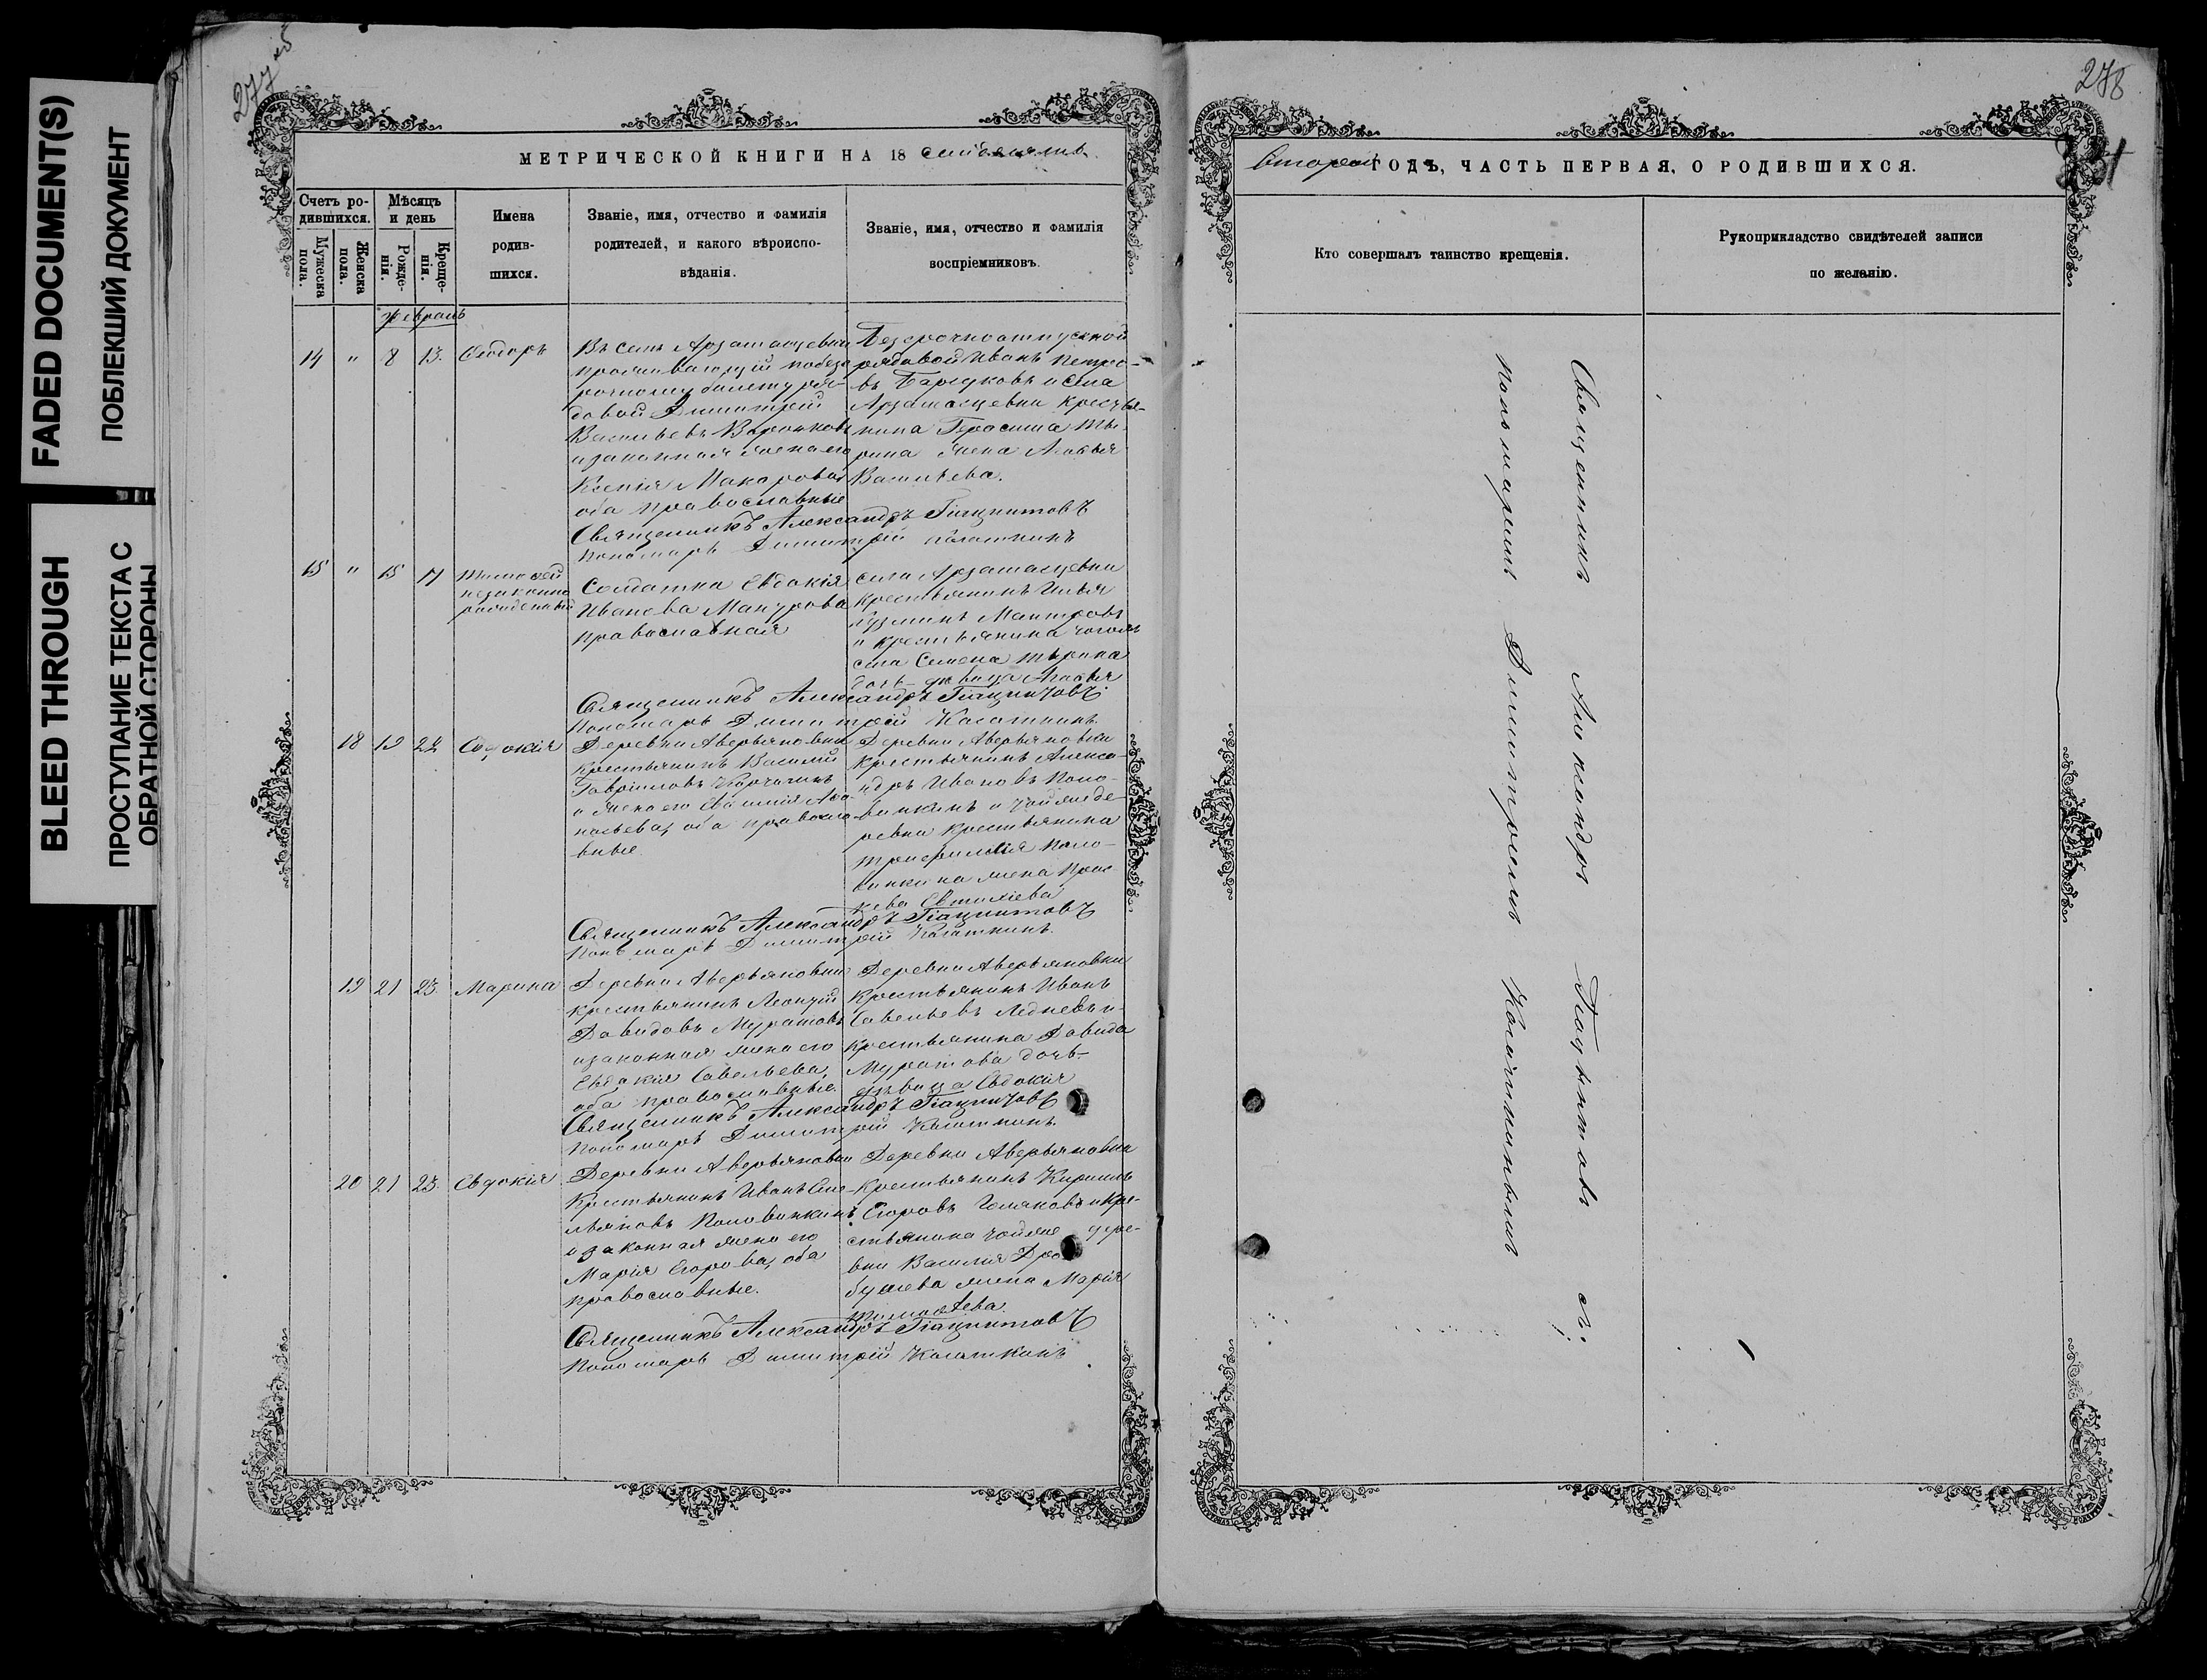 FADED DOCUMENT(S)
ПОБЛЕКШИЙ ДОКУМЕНТ
BLEED THROUGH
ПРОСТУПАНИЕ ТЕКСТА С
ОБРАТНОЙ СТОРОНЫ
277 об
МЕТРИЧЕСКОЙ КНИГИ НА 18 семьдесятъ
Счетъ ро-
дившихся.
Мужеска
пола.
Женска
пола.
Мѣсяцъ
и день
Рожде-
нія.
Креще-
нія.
Имена
родив-
шихся.
Званіе, имя, отчество и фамилія
родителей, и какого вѣроиспо-
вѣданія.
Званіе, имя, отчество и фамилія
воспріемниковъ.
февраль
14 " 8 13. Ѳеодоръ
Въ селѣ Арзамасцевки
проживающій по безс
рочному билету ря-
довой Димитрій
Васильевъ Воронковъ
и законная жена его
Ксенія Макарова
оба православные
Безсрочноотпускной
рядовой Иванъ Петро-
въ и села
Арзамасцевки крестья-
нина Герасима
жена
Васильева.
Священникъ Александръ Гіацинтовъ
Пономарь Димитрій Касаткинъ
15 " 15 17 Тимоѳей
незаконно
рожденный
Солдатка Евдокія
Иванова Манурова
православная
села Арзамасцевки
крестьянинъ Илья
Кузминъ
и крестьянина тогожъ
села Семена
дочь девица
Священникъ Александръ Гіацинтовъ
Пономарь Димитрій Касаткинъ
18 19 22 Евдокія
Деревни Аверьяновки
крестьянинъ Василій
Гавріиловъ Корчагинъ
и жена его
оба правосла-
вные
Деревни Аверьяновки
крестьянинъ Алекса-
ндръ Ивановъ Поло-
винкинъ и тойже де-
ревни крестьянина
Поло-
винкина жена Прас
Евтихіева
Священникъ Александръ Гіацинтовъ
Пономарь Димитрій Касаткинъ.
19 21 23. Марина
Деревни Аверьяновки
крестьянинъ Леонтій
Давидовъ Муратовъ
и законная жена его
Евдокія Савельева,
оба православные
Деревни Аверьяновки
крестьянинъ Иванъ
Савельевъ Ледневъ и
крестьянина Давида
Муратова дочь-
дѣвица Евдокія
Священникъ Александръ Гіацинтовъ
Пономарь Димитрій Касаткинъ.
20 21 23. Евдокія
Деревни Аверьяновки
Крестьянинъ Иванъ Еме-
льяновъ Половинкинъ
и законная жена его
Марія Егорова, оба
православные.
Деревни Аверьяновки
крестьянинъ Кириллъ
Егоровъ и кре-
стьянина тойже дере-
вни Василія
жена Марія
Тимоѳеева.
Священникъ Александръ Гіацинтовъ
Пономарь Димитрій Касаткинъ
278
второй ГОДЪ, ЧАСТЬ ПЕРВАЯ, О РОДИВШИХСЯ.
Кто совершалъ таинство крещенія.
Рукоприкладство свидѣтелей записи
по желанію.
Священникъ Александръ Гіацинтовъ съ
пономаремъ Димитріемъ Касаткинымъ